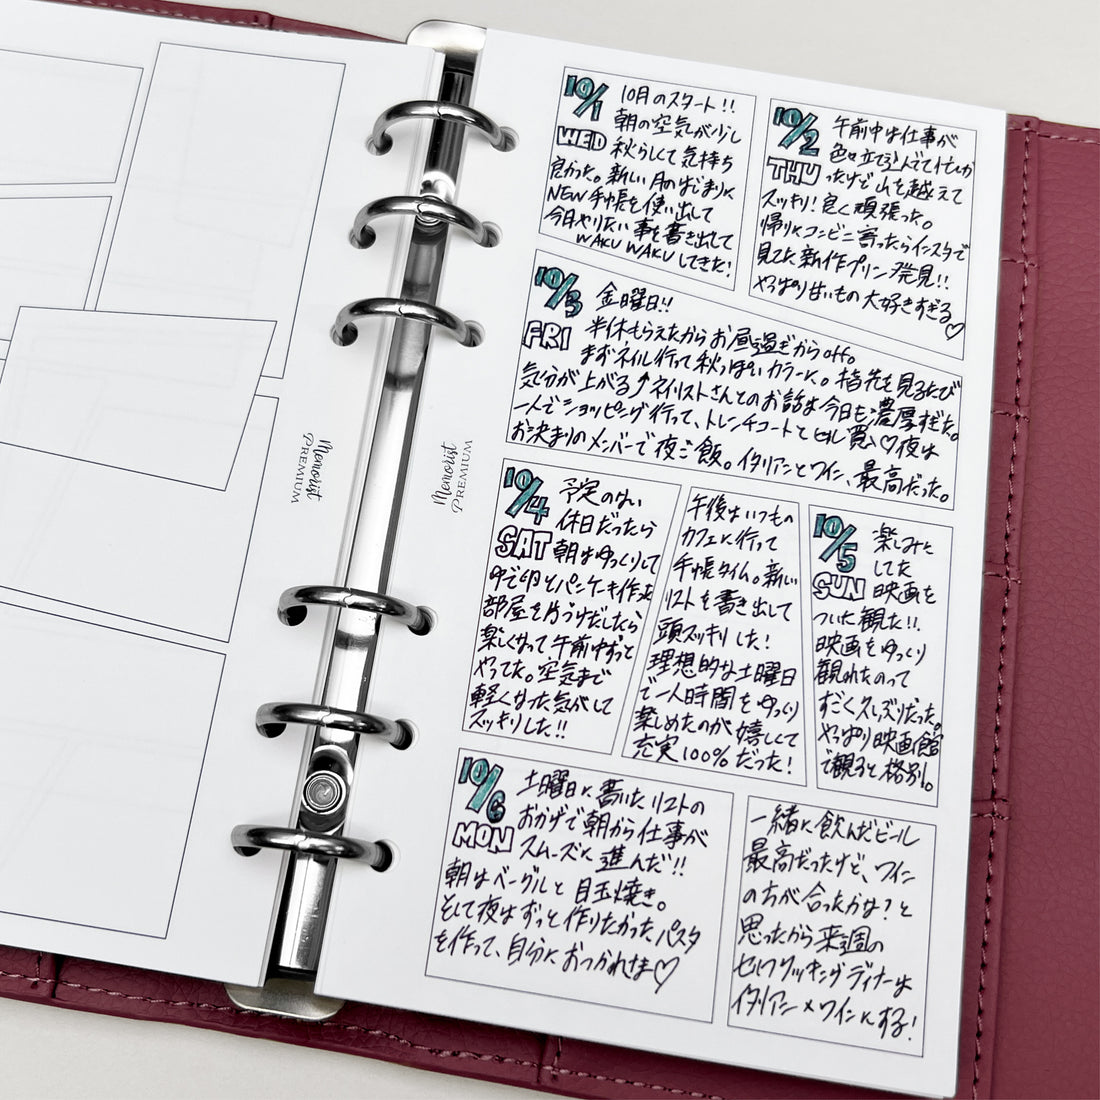 Memorist
PREMIUM
Memorist
PREMIUM
10/1
WED
10月のスタート!!
朝の空気が少し
秋らしくて気持ち
良かった。新しい月のはじまりに
NEW 手帳を使い出して
今月やりたい事を書き出して
WAKU WAKUしてきた!
10/2
THU
午前中は仕事が
色々立て込んでて忙しか
ったけど山を越えて
スッキリ!良く頑張った。
帰りにコンビニ寄ったらインスタで
見てた新作プリン発見!!
やっぱり甘いもの大好きすぎる♡
10/3
FRI
金曜日!!
半休もらえたからお昼過ぎからoff。
まずネイル行って秋っぽいカラーに。指先を見るたび
気分が上がる↑ネイリストさんとのお話は今日も濃厚だった。
一人でショッピング行って、トレンチコートとヒール買い♡夜は
お決まりのメンバーで夜ご飯。イタリアンとワイン、最高だった。
10/4
SAT
予定のない
休日だったら
朝はゆっくりして
ゆで卵とパンケーキ作る
部屋を片づけだしたら
楽しくなって午前中ずっと
やってた。空気まで
軽くなった気がして
スッキリした!!
午後はいつもの
カフェに行って
手帳タイム。新しい
リストを書き出して
頭スッキリした!
理想的な土曜日
で一人時間をゆっくり
楽しめたのが嬉しくて
充実100%だった!
10/5
SUN
楽しみに
してた
映画を
ついに観た!!
映画をゆっくり
観れたのって
すごく久しぶりだった。
やっぱり映画館
で観ると格別。
10/6
MON
土曜日に書いたリストの
おかげで朝から仕事が
スムーズに進んだ!!
朝はベーグルと目玉焼き。
そして夜はずっと作りたかった、パスタ
を作って、自分におつかれさま♡
一緒に飲んだビール
最高だったけど、ワイン
の方が合ったかな?と
思ったから来週の
セルフクッキングディナーは
イタリアン×ワインにする!